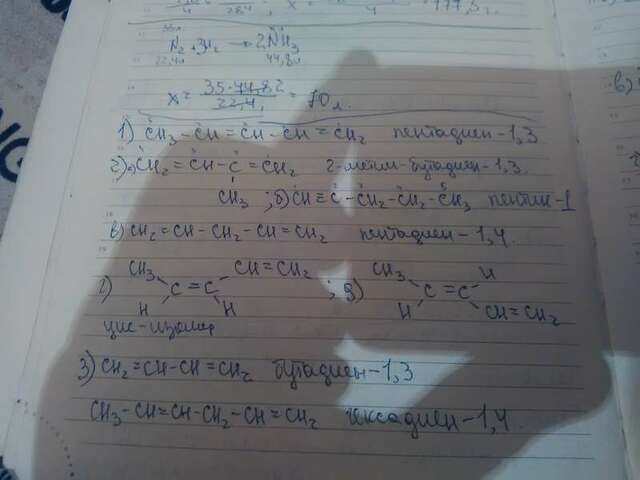 N₂ + 3H₂ → 2NH₃
22,4л 44,8л
x = 35·44,8 / 22,4 = 70 л.
1) CH₃-CH=CH-CH=CH₂ пентадиен-1,3
2) а) CH₂=CH-C=CH₂ 2-метил-бутадиен-1,3.
CH₃ ; б) CH≡C-CH₂-CH₂-CH₃ пентин-1
в) CH₂=CH-CH₂-CH=CH₂ пентадиен-1,4.
г) CH₃ CH=CH₂ ; д) CH₃ H
C=C C=C
H H H CH=CH₂
цис-изомер
3) CH₂=CH-CH=CH₂ бутадиен-1,3
CH₃-CH=CH-CH₂-CH=CH₂ гексадиен-1,4.